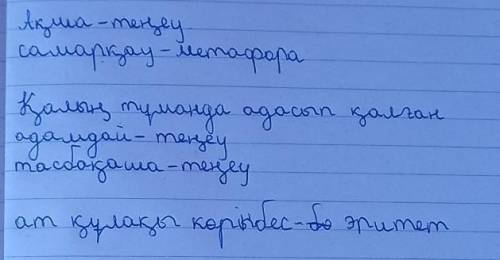 Ақша-теңеу
самарқау-метафора
Қалың тұманда адасып қалған
адамдай-теңеу
тасбақаша-теңеу
ат құлақы көріңбес- эпитет